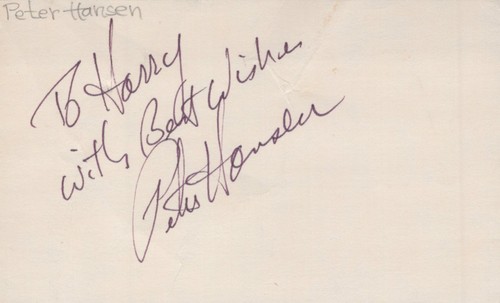 Peter Hansen
To Harry
with Best Wishes
Peter Hansen